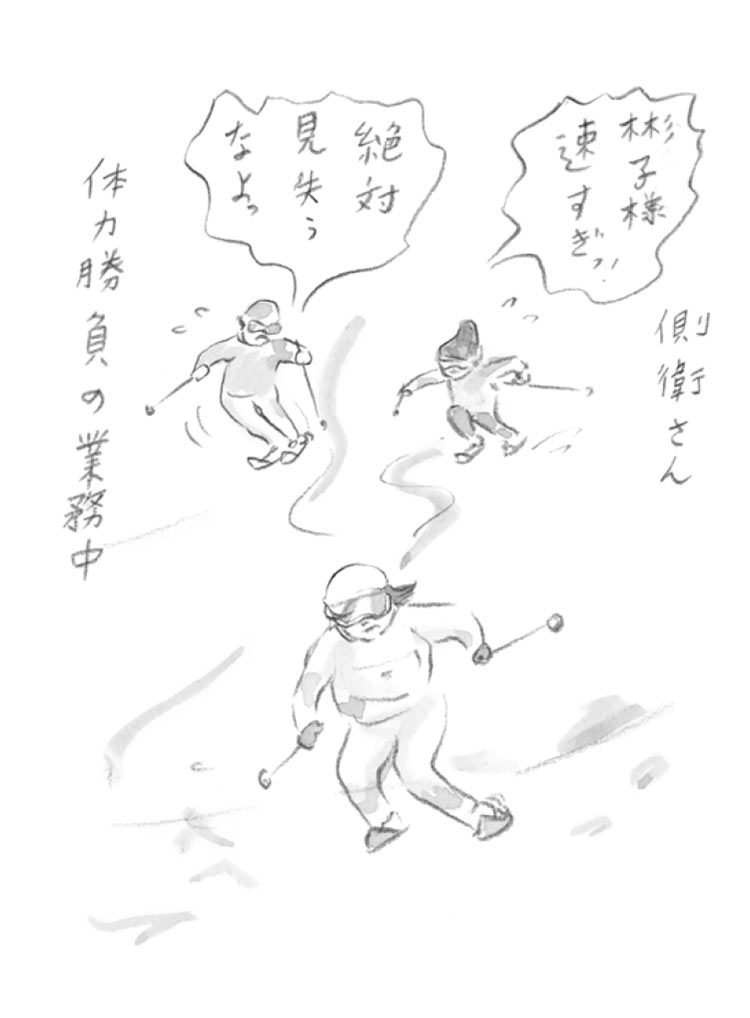 彬子様
速すぎッ!
側衛さん
絶対
見失う
なよっ
体力勝負の業務中